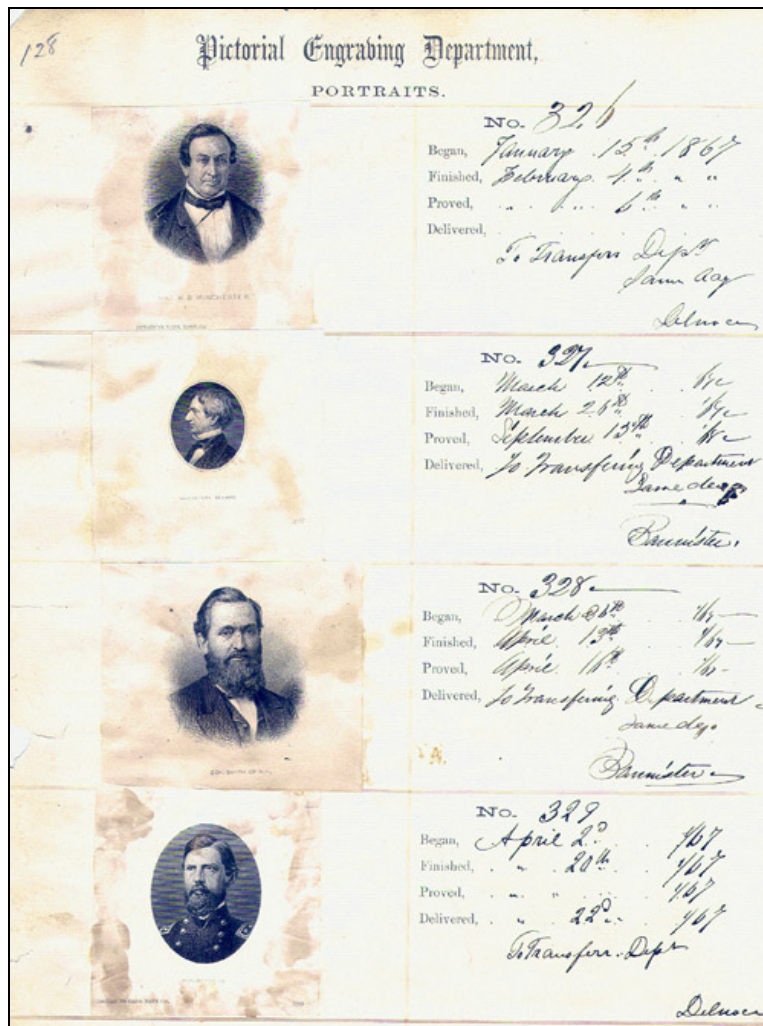 128
Pictorial Engraving Department,
PORTRAITS.
No. 326
Began, January 15th 1867
Finished, February 4th " "
Proved, " 6th " "
Delivered,
To Transferr Dept
Same day
Delnoce
No. 327
Began, March 12th
Finished, March 26th
Proved, September 13th
Delivered, To Transfering Department
Same day
Bannister.
No. 328
Began, March 26th
Finished, April 13th
Proved, April 16th
Delivered, To Transfering Department
Same day.
Bannister
No. 329
Began, April 2d /67
Finished, " 20th /67
Proved, " " /67
Delivered, " 22d /67
To Transferr. Dept
Delnoce